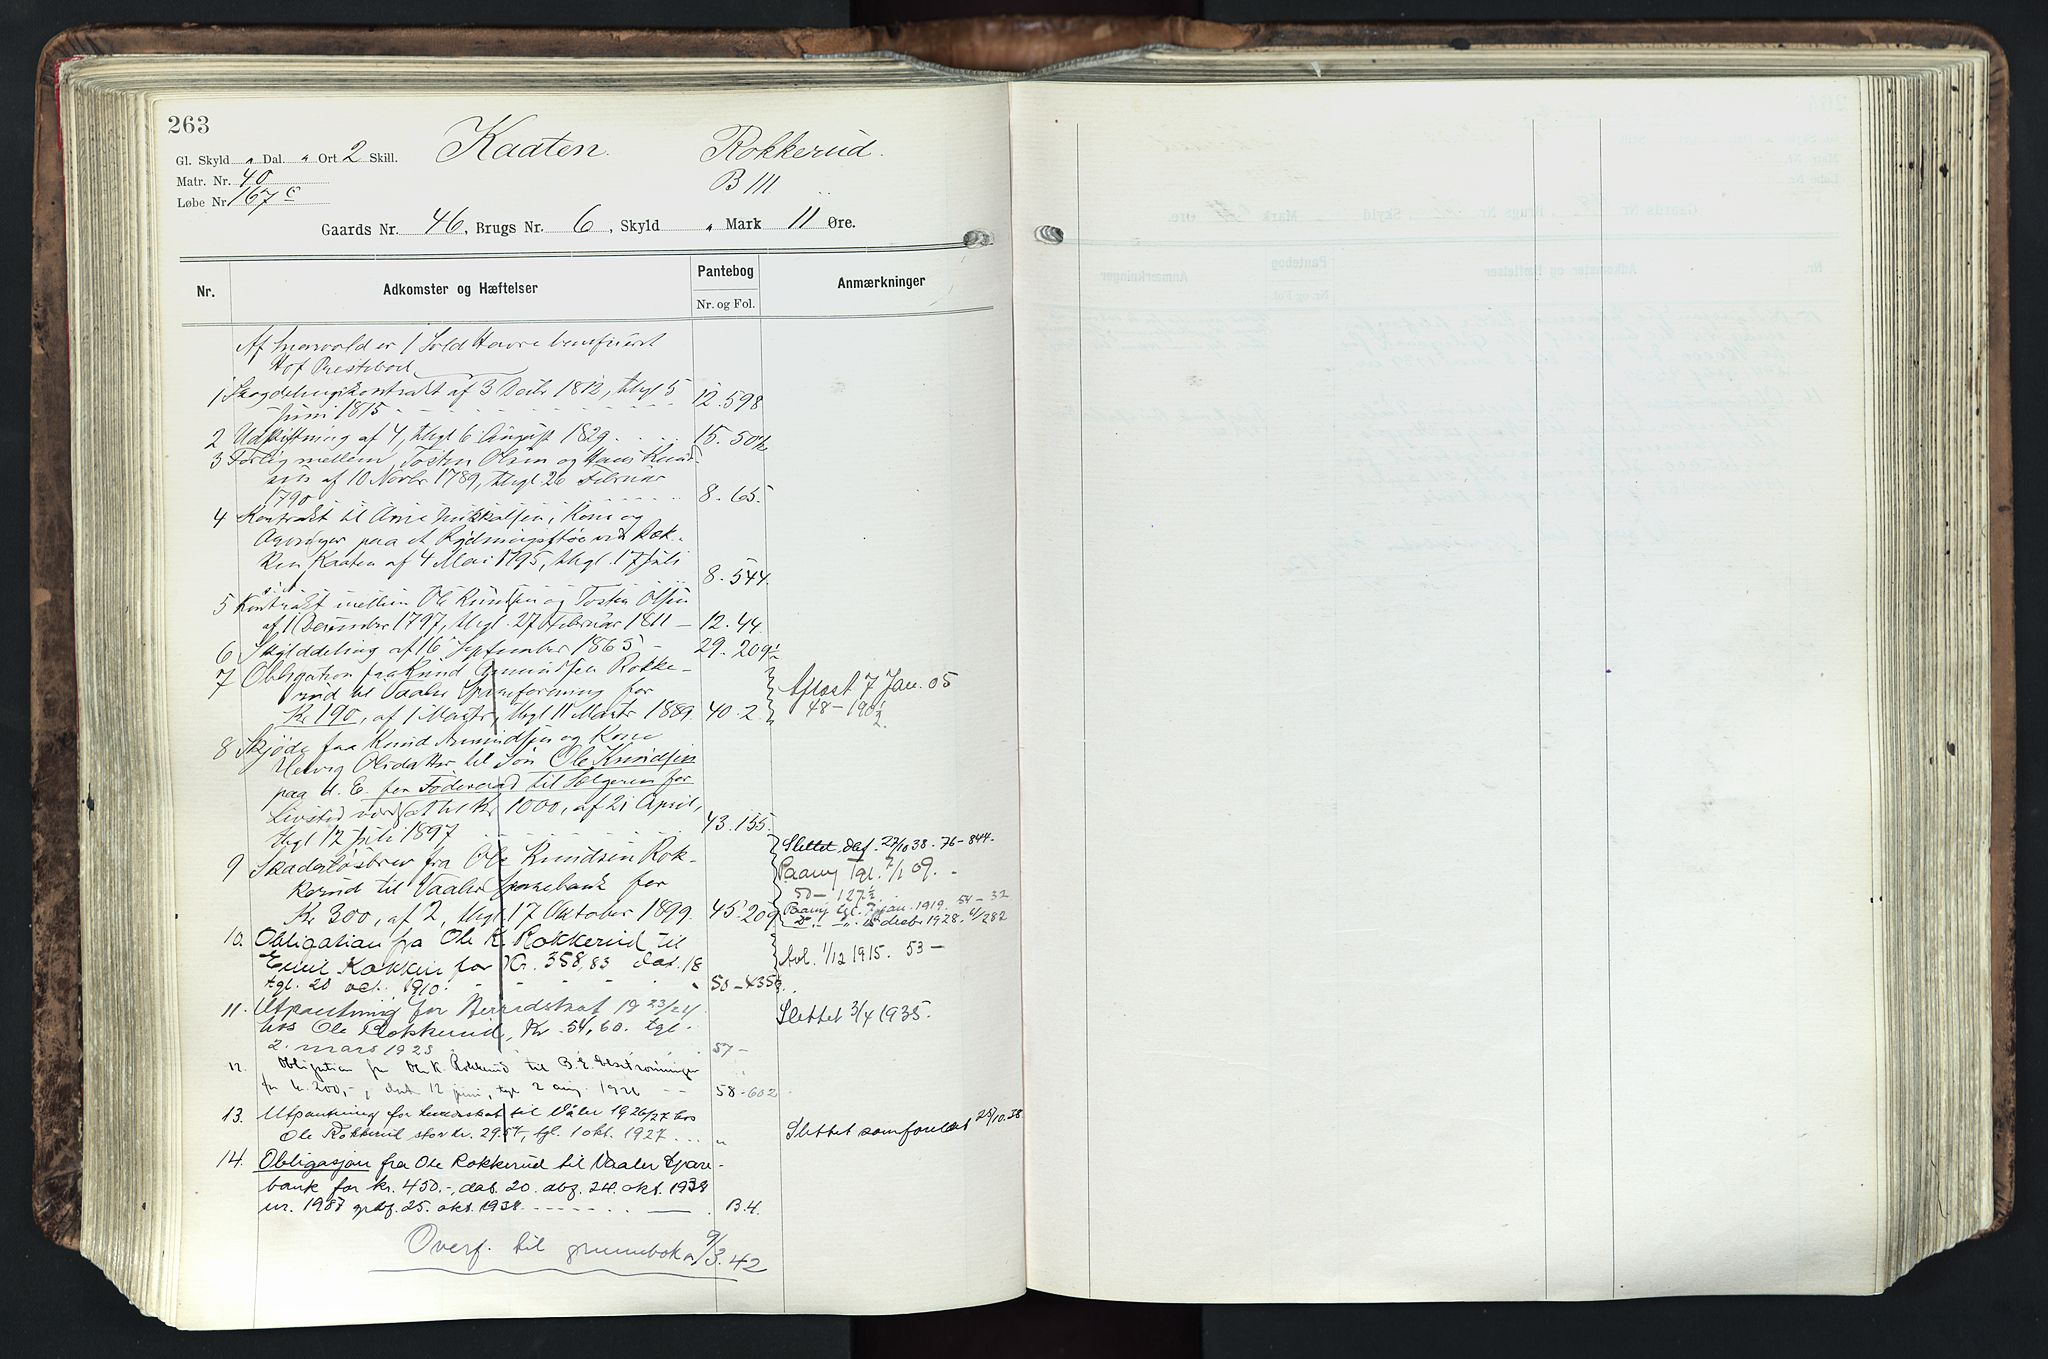 263
Gl. Skyld „ Dal. „ Ort 2 Skill. Kaaten. Rokkerud.
Matr. Nr. 40 B III
Løbe Nr. 167 c
Gaards Nr. 46, Brugs Nr. 6, Skyld „ Mark 11 Øre.
Nr. Adkomster og Hæftelser Pantebog Anmærkninger
Nr. og Fol.
Af er 1 Hold Havre beneficeret
Hof Prestebord
1 Skogdelingskontrakt af 3 Decbr 1812, thgl 5
Juni 1815 12. 598
2 Udskiftning af 4, thgl 6 August 1829 15. 504
3 Forlig mellem Tosten Olsen og Hans Knud-
sen af 10 Novbr 1789, thgl 26 Februar
1790 8. 65.
4 Kontrakt til Arne Mikkelsen, Kone og
paa et Rydningsstøe ved Rok-
ken Kaaten af 4 Mai 1795, thgl. 17 Juli
s. A. 8. 544.
5 Kontrakt mellem Ole Knudsen og Tosten Olsen
af 1 December 1797, thgl. 27 Februar 1811 — 12. 44.
6 Skylddeling af 16 September 1865 — 29. 209½
7 Obligation fra Knud Amundsen Rokke-
rud til Vaaler Spareforening for
Kr 190, af 1 Marts, thgl 11 Marts 1889. 40. 2. Aflæst 7 Jan. 05
48 – 190½
8 Skjøde fra Knud Amundsen og Kone
Helvig Olsdatter til Søn Ole Knudsen
paa d. E. for Føderaad til Sælgeren for
Livstid værdsat til Kr 1000, af 21 April,
thgl 12 Juli 1897 43. 155.
9 Skadesløsbrev fra Ole Knudsen Rok-
kerud til Vaaler Sparebank for
Kr 300, af 2, thgl 17 Oktober 1899. 45. 209
Slettet daf. 27/10 38. 76–844.
Paany Tgl. 7/1 09.
50 – 127½
Paany tgl. jan. 1919. 54 – 32
Do „ decbr 1928. 4/282
10. Obligation fra Ole K. Rokkerud til
Emil Kokkin for Kr. 358,83 dat. 18
tgl. 20 oct. 1910. 50 – 435 Avl. 1/12 1915. 53 –
11. Utpantning for Herredskat 1923/24
hos Ole Rokkerud, Kr. 54,60. tgl.
2. mars 1925 57 – Slettet 3/4 1935.
12. Obligation fra Ole K. Rokkerud til B. E.
for kr. 200,-, dat 12 juni, tgl 2 aug. 1926 58 - 602
13. Utpantning for herredskat til Våler 1926/27 hos
Ole Rokkerud stor kr. 29.57, tgl. 1 okt. 1927 „ Slettet som foreldet 25/10. 38.
14. Obligasjon fra Ole Rokkerud til Vaaler Spare-
bank for kr. 450.-, dat. 20. abg. 24. okt. 1938
nr. 1987 grbf. 25. okt. 1938. B. 4.
Overf. til grunnboka 9/3. 42